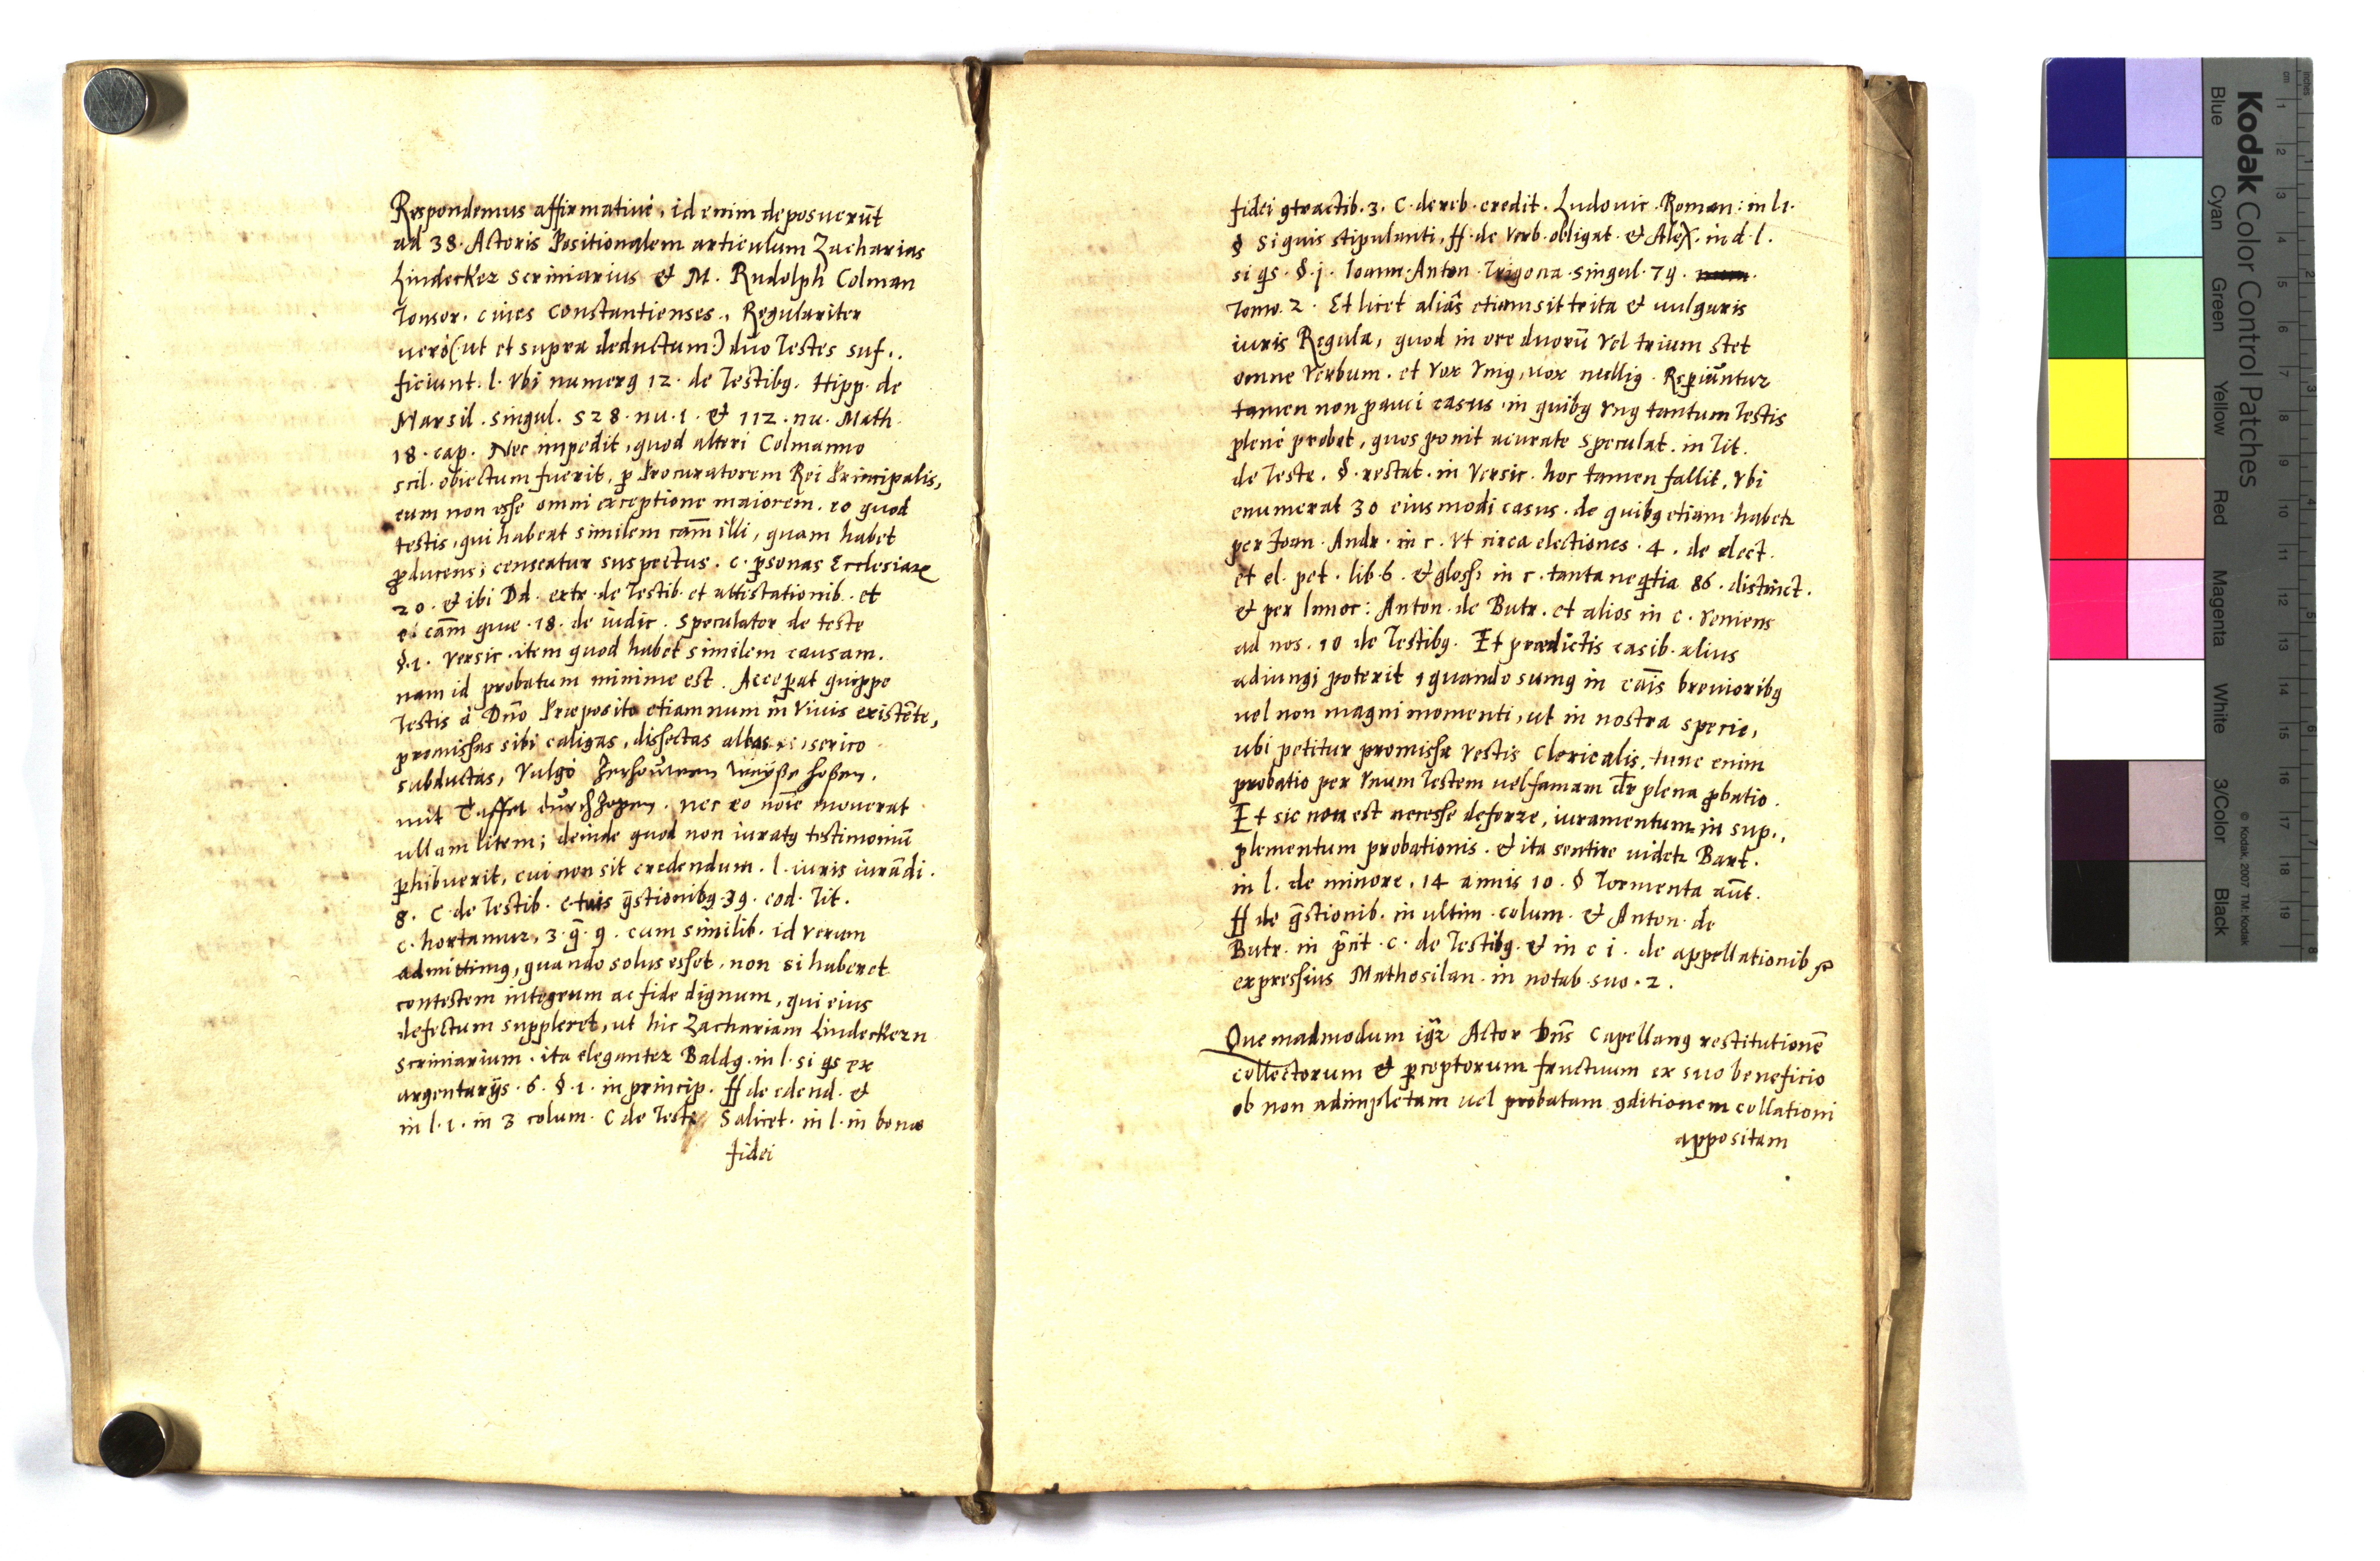 Respondemus affirmativè, id enim deposuerūt
ad 38. Actoris Positionalem articulum Zacharias
Lindecker scriniarius et M. Rudolph Colman
Tonsor. cives Constantienses., Regulariter
verò (ut et supra deductum) duo Testes suf..
ficiunt. l. Vbi numerꝯ 12. de Testibꝯ. Hipp. de
Marsil. singul. 528. nu. 1. et 112. nu. Math.
18. cap. Nec impedit, quod alteri Colmanno
scil. obiectum fuerit, ꝑ Procuratorem Rei Principalis,
eum non esse omni exceptione maiorem. eo quod
testis, qui habeat similem cām illi, quam habet
ꝓducens; censeatur suspectus. c. ꝑsonas Ecclesiaꝝ
20. et ibi Dd. extr. de Testib. et attestationib. et
cām que. 18. de iudic. Speculator de teste
§.1. Versic. item quod habet similem causam.
nam id probatum minime est. Acceꝑat quippe
Testis à Dño Præposito etiamnum in vivis existēte,
promissas sibi caligas, dissectas albas serico
subductas, Vulgò Zerhouwen weysse hosen,
mit Taffet durchzogen. nec eo noīe moverat
ullam litem; deinde quod non iuratꝯ testimoniū
ꝑhibuerit, cui non sit credendum. l. iuris iurādi.
8. C de Testib. c tuis q̄stionibꝯ 39. eod. Tit.
c. hortamur, 3. q̄. 9. cum similib. id verum
admittimꝯ, quando solus esset, non si haberet
contestem integrum ac fide dignum, qui eius
defectum suppleret, ut hic Zachariam Lindeckern
scriniarium. ita eleganter Baldꝯ. in l. si qs ex
argentarijs. 6. §. 1. in princip. ff de edend. et
in l. 1. in 3 colum. C de Test. Salicet. in l. in bonæ
fidei
fidei ꝯtractib. 3. C. de reb. credit. Ludovic. Roman: in l 1.
§ Si quis stipulanti, ff. de Verb. obligat. et Alex. in d. l.
si qs. §. j. Ioann. Anton. Trigona singul. 79.
Tomo. 2. Et licet aliàs etiam sit trita et vulgaris
iuris Regula, quod in ore duorū vel trium stet
omne Verbum. et vox Vniꝯ, vox nulliꝯ. Reꝑiūntur
tamen non pauci casus in quibꝯ Vnꝯ tantum Testis
plenè probet, quos ponit acurate Speculat. in Tit.
de Teste. §. restat. in Versic. hoc tamen fallit, Vbi
enumerat 30 eiusmodi casus. de quibꝯ etiam habetr
per Ioan. Andr. in c. Vt circa electiones. 4. de elect.
et el. pet. lib. 6. et gloss. in c. tanta neqtia 86. distinct.
et per Innoc: Anton. de Butr. et alios in c. Veniens
ad nos. 10 de Testibꝯ. Et prædictis casib. alius
adiungi poterit, quando sumꝯ in cāis brevioribꝯ
vel non magni momenti, ut in nostra specie,
ubi petitur promissa Vestis Clericalis, tunc enim
probatio per Vnum Testem vel famam dr̄ plena ꝓbatio.
Et sic non est necesse deferre, iuramentum in sup..
plementum probationis. et ita sentire videtr Bart.
in l. de minore. 14 annis 10. § Tormenta aūt.
ff de q̄stionib. in ultim. colum. et Anton. de
Butr. in p̄nt. c. de Testibꝯ. et in c i. de appellationib
expressius Mathosilan. in notab. suo. 2.
Quemadmodum igr̄ Actor Dn̄s Capellanꝯ restitutionē
collectorum et ꝑceptorum fructuum ex suo beneficio
ob non adimpletam vel probatam ꝯditionem collationi
appositam
Kodak Color Control Patches
Blue Cyan Green Yellow Red Magenta White 3/Color Black
© Kodak, 2007 TM: Kodak
cm 1 2 3 4 5 6 7 8 9 10 11 12 13 14 15 16 17 18 19
inches 1 2 3 4 5 6 7 8